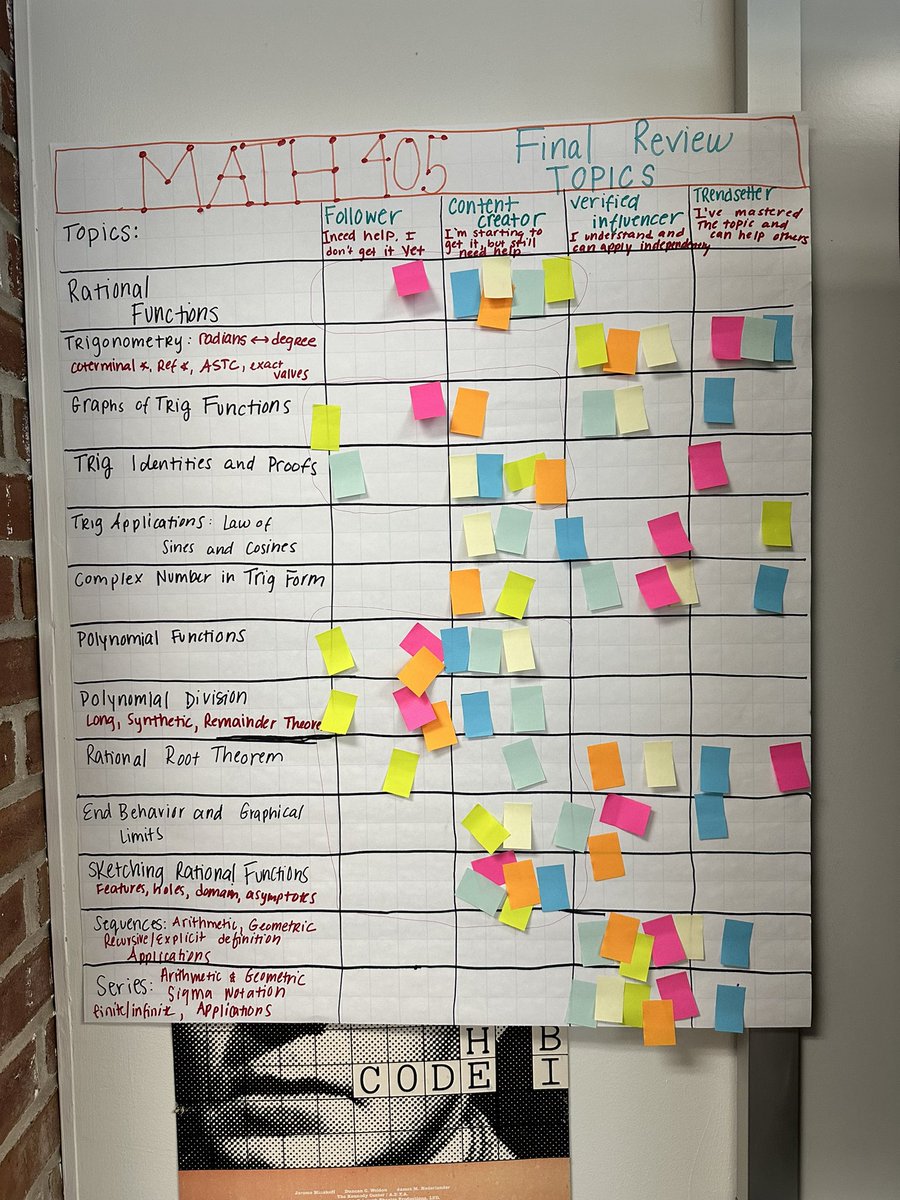 MATH 405
Final Review
TOPICS
Topics:
Follower
I need help. I
don't get it yet
Content
creator
I'm starting to
get it, but still
need help
Verified
influencer
I understand and
can apply independently
Trendsetter
I've mastered
The topic and
can help others
Rational
Functions
Trigonometry: radians ↔ degree
coterminal ∡, Ref ∡, ASTC, exact
values
Graphs of Trig Functions
Trig Identities and Proofs
Trig Applications: Law of
Sines and Cosines
Complex Number in Trig Form
Polynomial Functions
Polynomial Division
Long, Synthetic, Remainder Theore
Rational Root Theorem
End Behavior and Graphical
Limits
Sketching Rational Functions
Features, Holes, domain, asymptotes
Sequences: Arithmetic, Geometric
Recursive/Explicit definition
Applications
Series: Arithmetic & Geometric
Sigma Notation
finite/infinite, Applications
H B
CODE I
Jerome Minskoff Duncan C. Weldon James M. Nederlander
The Kennedy Center / A.T.&T.